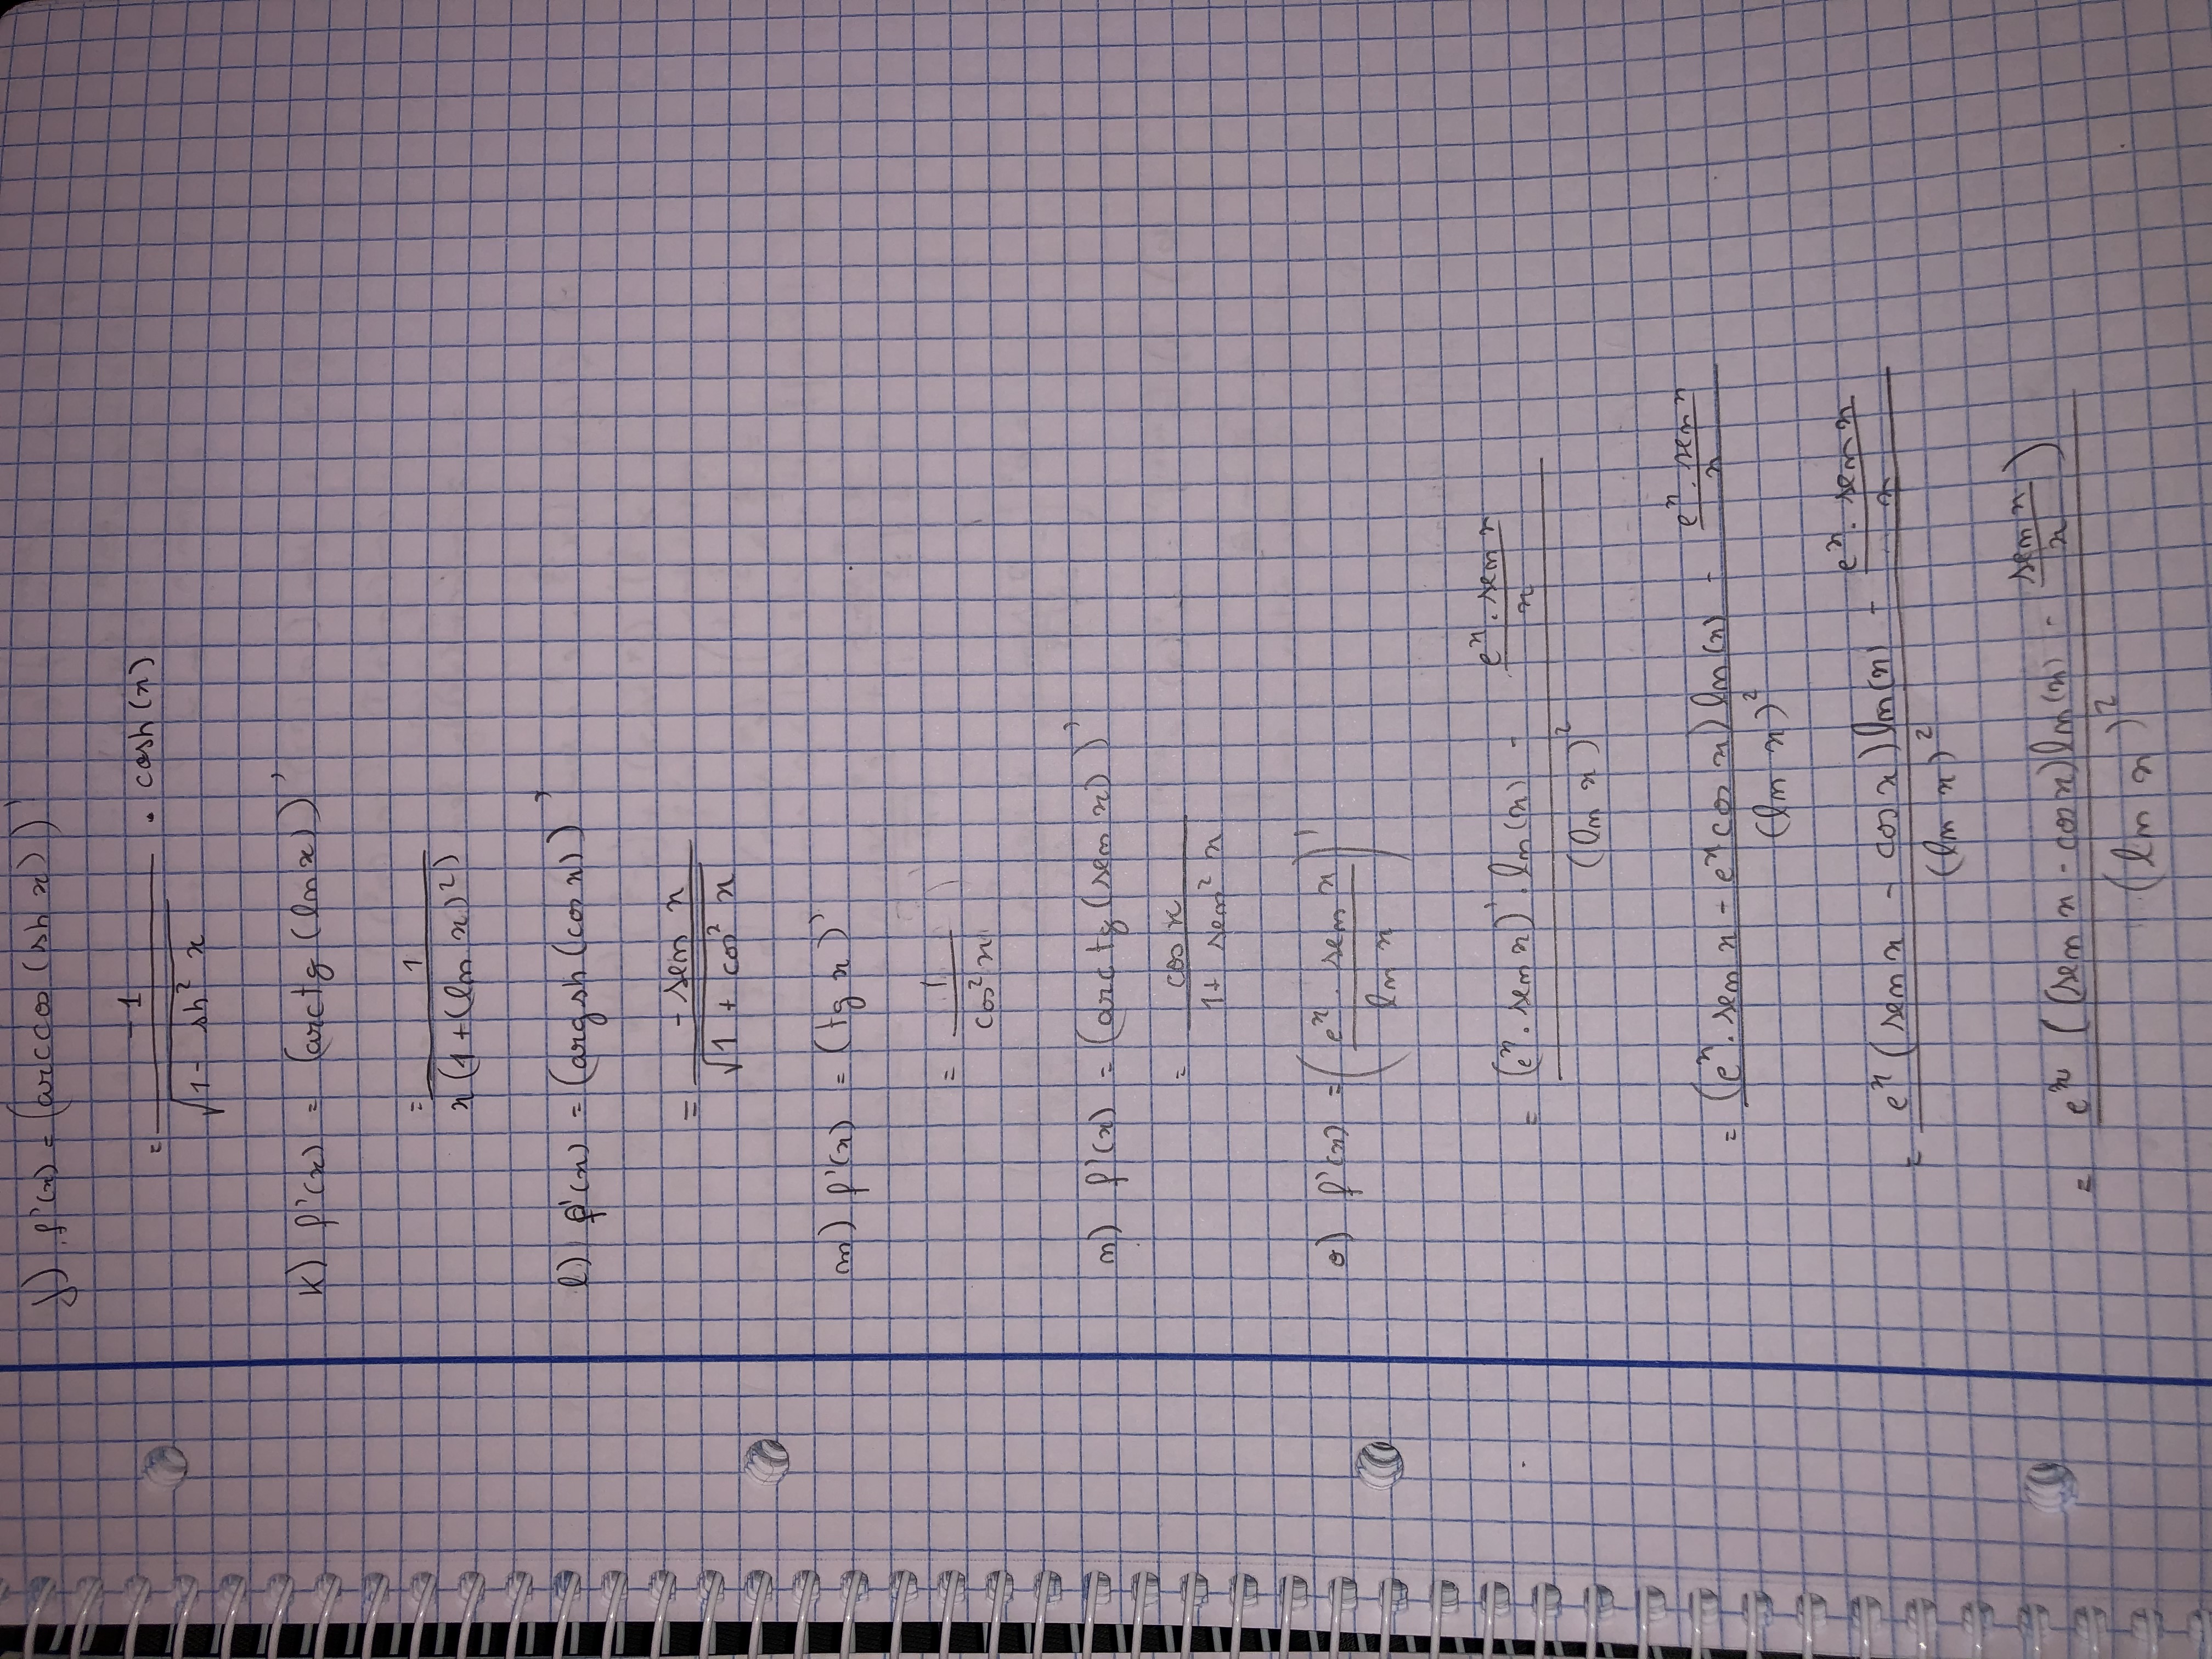 j) f'(x) = (arccos (sh x))'
= -1 / √(1 - sh² x) · cosh(x)
k) f'(x) = (arctg (ln x))'
= 1 / x(1+(ln x)²)
l) f'(x) = (argsh (cos x))'
= -sen x / √(1 + cos² x)
m) f'(x) = (tg x)'
= 1 / cos² x
n) f'(x) = (arctg (sen x))'
= cos x / 1+ sen² x
o) f'(x) = (e^x · sen x / ln x)'
= (e^x · sen x)' · ln(x) - e^x · sen x / x / (ln x)²
= (e^x · sen x - e^x cos x) ln(x) - e^x · sen x / x / (ln x)²
= e^x (sen x - cos x) ln(x) - e^x · sen x / x / (ln x)²
= e^x ((sen x - cos x) ln(x) - sen x / x) / (ln x)²